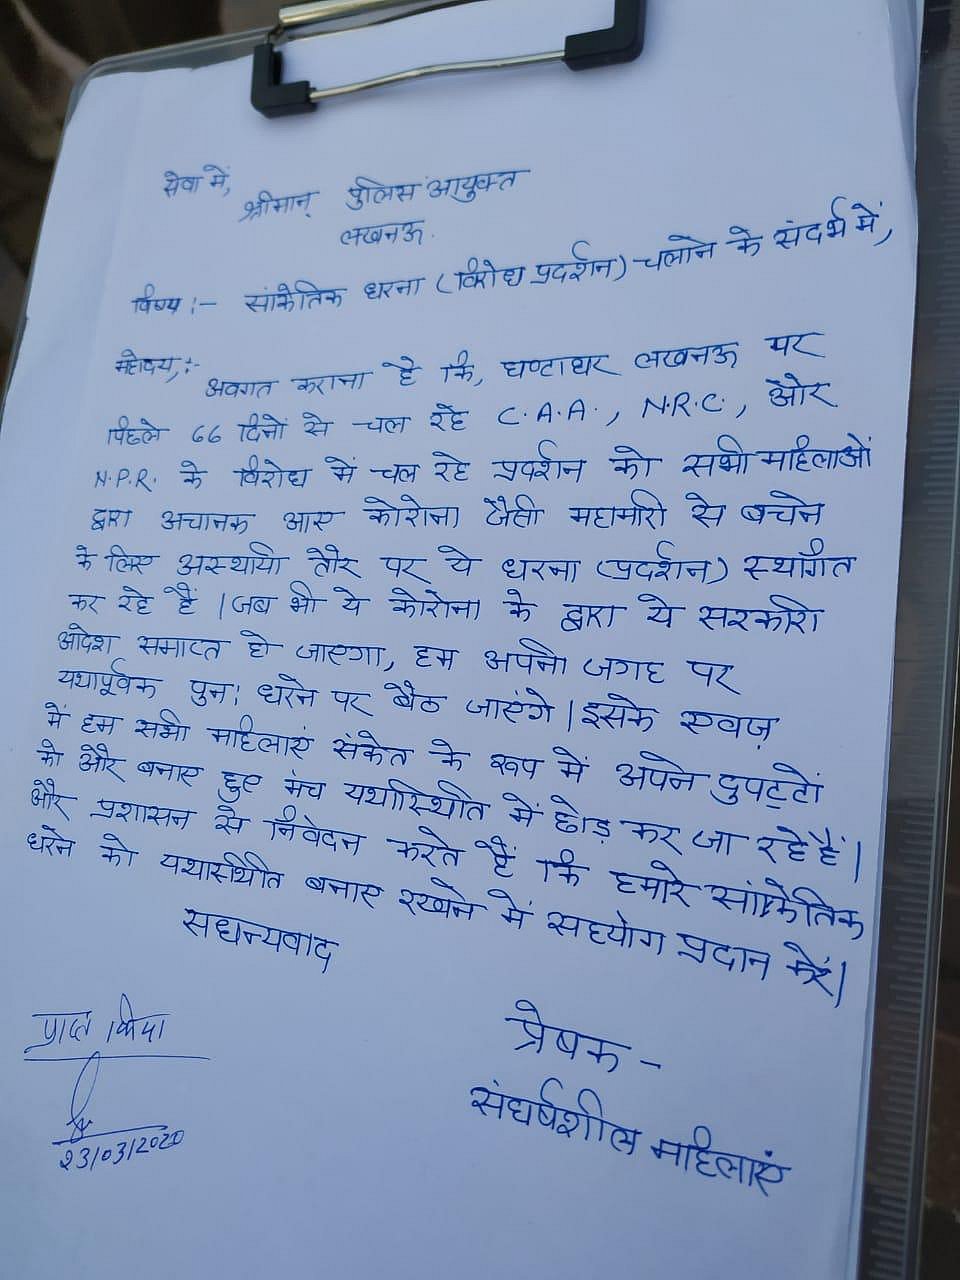 सेवा में,
श्रीमान् पुलिस आयुक्त
लखनऊ.
विषय :- सांकेतिक धरना (विरोध प्रदर्शन) चलाने के संदर्भ में,
महोदय,:-
अवगत कराना है कि, घण्टाघर लखनऊ पर
पिछले 66 दिनों से चल रहे C.A.A., N.R.C., और
N.P.R. के विरोध में चल रहे प्रदर्शन को सभी महिलाओं
द्वारा अचानक आए कोरोना जैसी महामारी से बचने
के लिए अस्थायी तौर पर ये धरना (प्रदर्शन) स्थगित
कर रहे हैं। जब भी ये कोरोना के द्वारा ये सरकारी
आदेश समाप्त हो जाएगा, हम अपनी जगह पर
यथापूर्वक पुन: धरने पर बैठ जाएंगे। इसके एवज़
में हम सभी महिलाएं संकेत के रूप में अपने दुपट्टों
को और बनाए हुए मंच यथास्थिति में छोड़ कर जा रहे हैं।
और प्रशासन से निवेदन करते हैं कि हमारे सांकेतिक
धरने को यथास्थिति बनाए रखने में सहयोग प्रदान करें।
सधन्यवाद
प्रेषक -
संघर्षशील महिलाएं
प्राप्त किया
23/03/2020